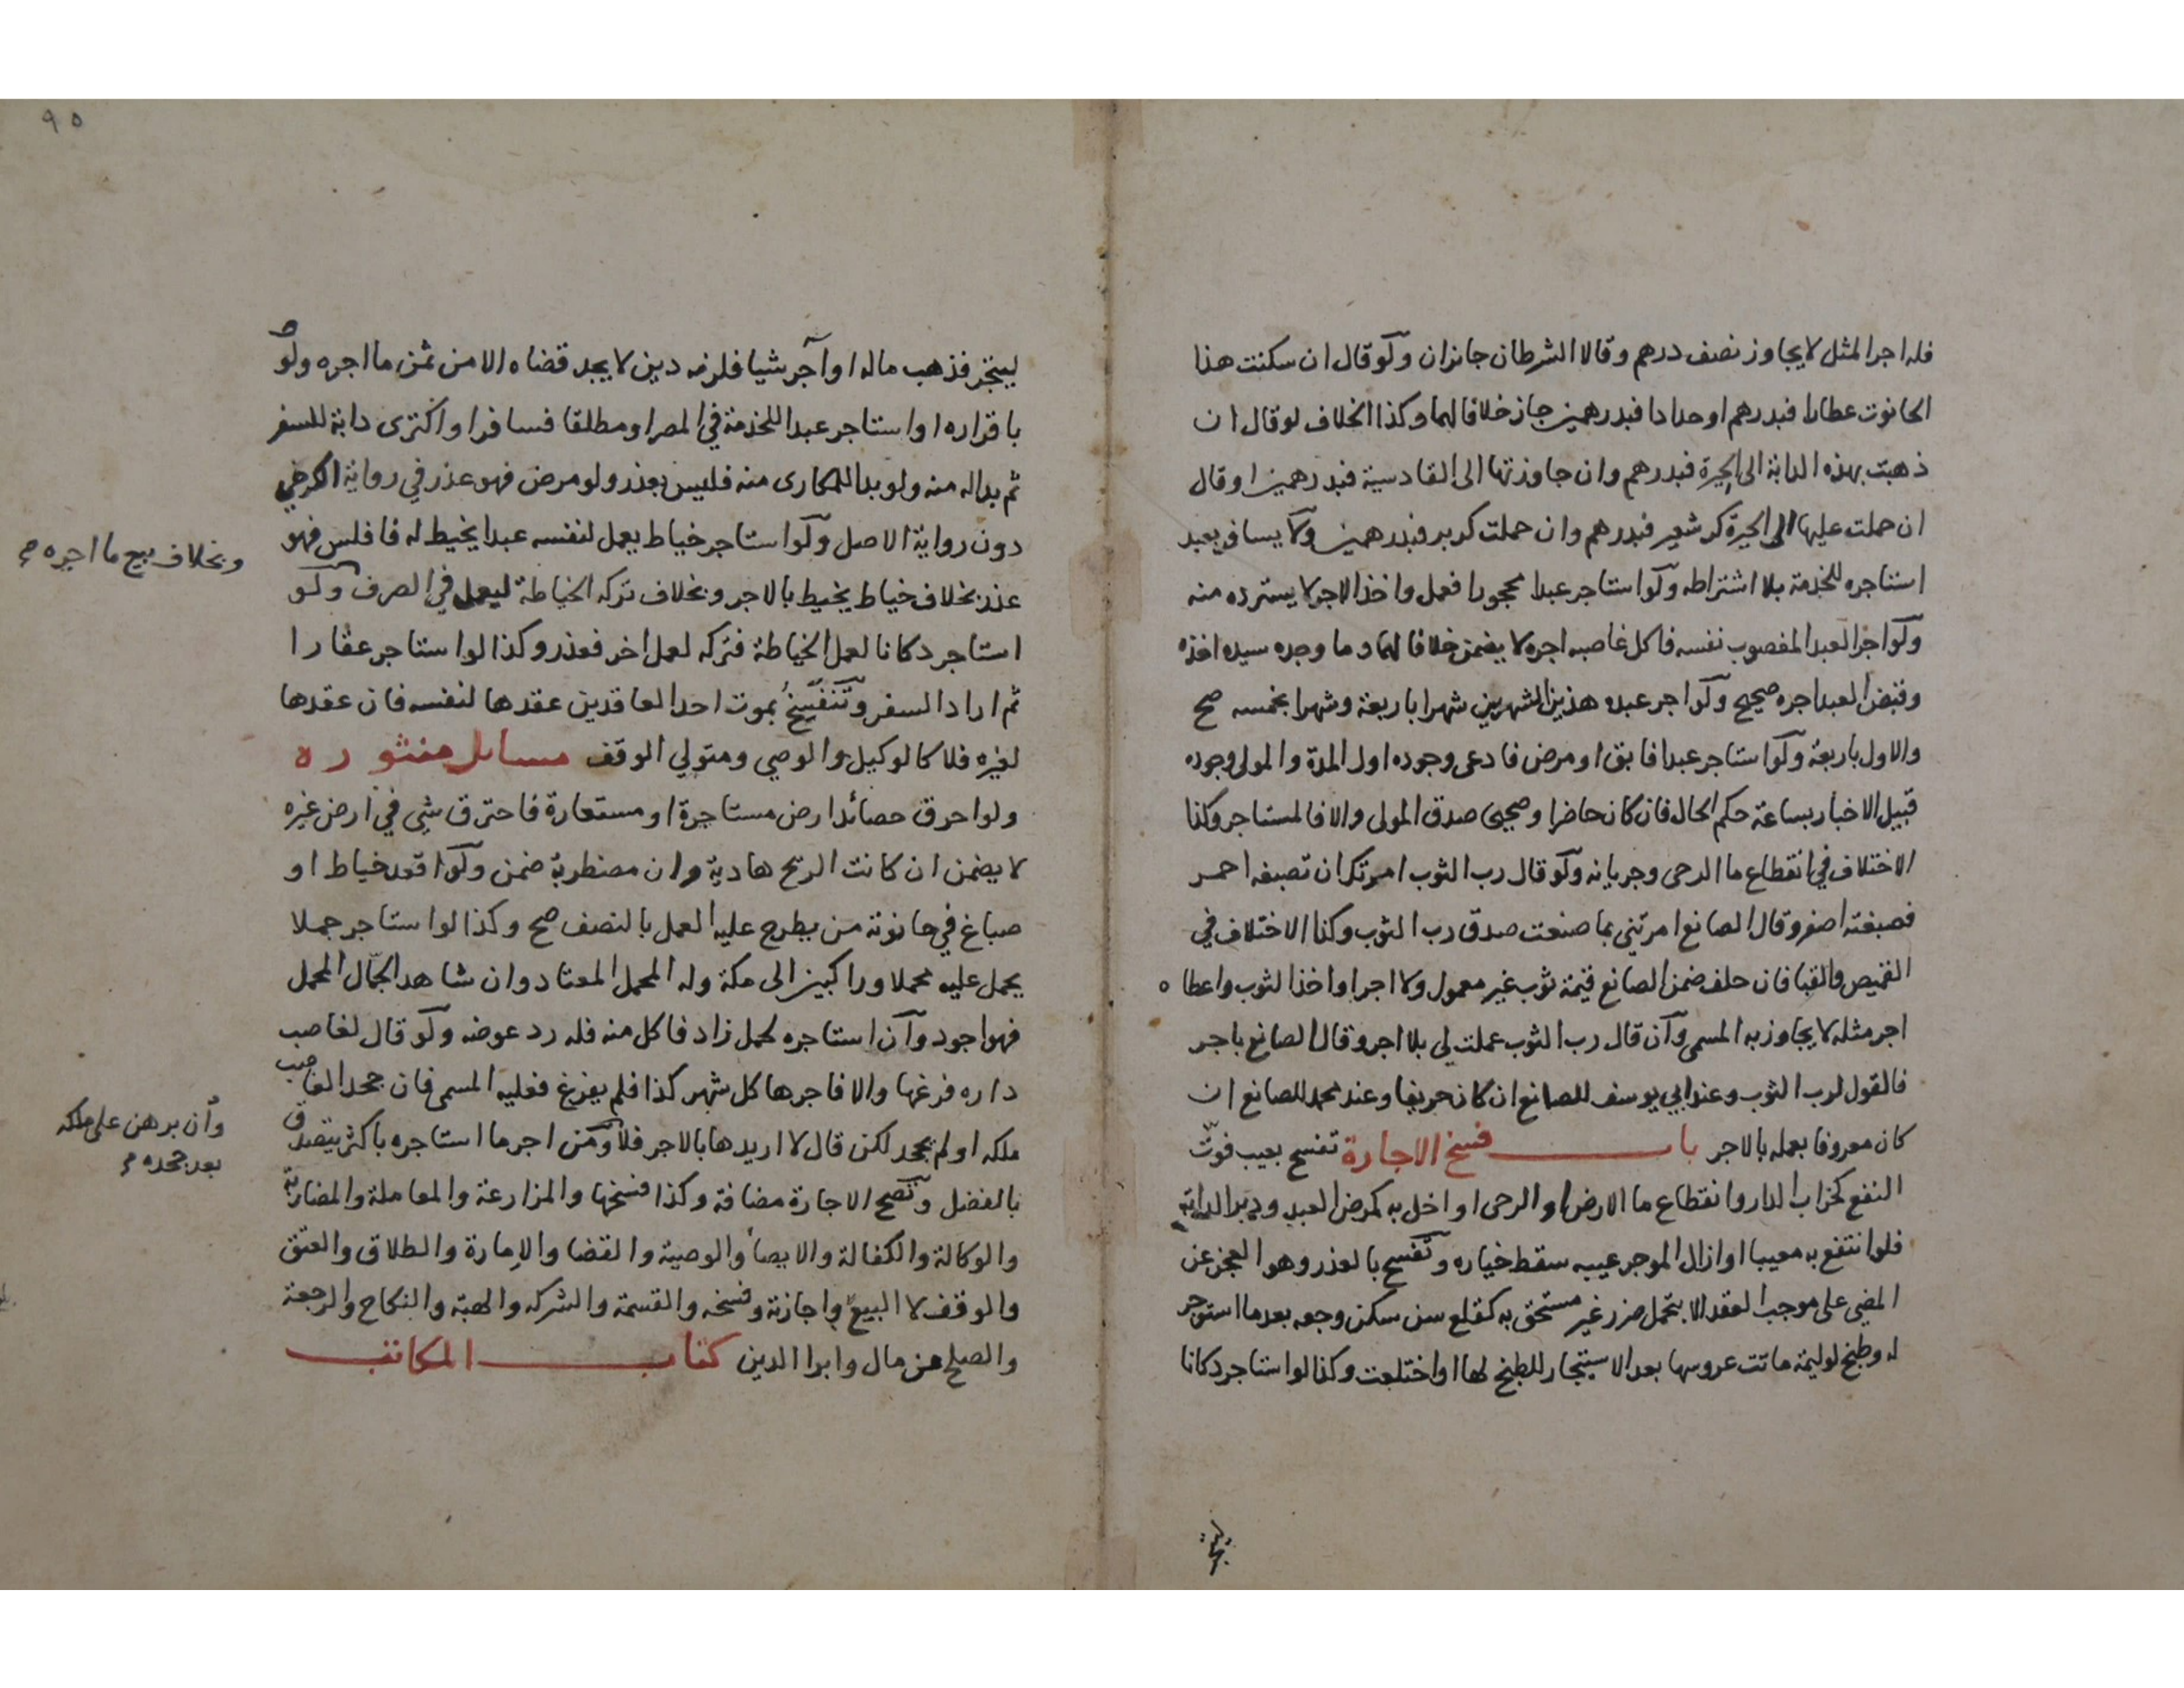 فله اجر المثل لا يجاوز نصف درهم وقالا الشرطان جائزان ولو قال ان سكنت هذا
الحانوت عطارا فبدرهم او حدادا فبدرهمين جاز خلافا لهما وكذا الخلاف لو قال ان
ذهبت بهذه الدابة الى الحيرة فبدرهم وان جاوزتها الى القادسية فبدرهمين او قال
ان حملت عليها الى الحيرة كر شعير فبدرهم وان حملت كر بر فبدرهمين ولا يسافر بعبد
استاجره للخدمة بلا اشتراطه ولو استاجر عبدا محجورا فعمل واخذ الاجر لا يسترده منه
ولو اجر العبد المغصوب نفسه فاكل غاصبه اجره لا يضمن خلافا لهما وما وجده سيده اخذه
وقبض العبد اجره صحيح ولو اجر عبده هذين الشهرين شهرا باربعة وشهرا بخمسه صح
والاول باربعة ولو استاجر عبدا فابق او مرض فادعى وجوده اول المدة والمولى وجوده
قبيل الاخبار بساعة حكم الحال فان كان حاضرا وصحيحا صدق المولى والا فالمستاجر وكذا
الاختلاف في انقطاع ما الرحى وجريانه ولو قال رب الثوب امرتك ان تصبغه احمر
فصبغته اصفر وقال الصانع امرتني بما صنعت صدق رب الثوب وكذا الاختلاف في
القميص والقبا فان حلف ضمن الصانع قيمة ثوب غير معمول ولا اجر او اخذ الثوب واعطاه
اجر مثله لا يجاوز به المسمى وان قال رب الثوب عملت لي بلا اجر وقال الصانع باجر
فالقول لرب الثوب وعند ابي يوسف للصانع ان كان حريفا وعند محمد للصانع ان
كان معروفا بعمله بالاجر باب فسخ الاجارة تفسخ بعيب فوت
النفع كخراب الدار وانقطاع ما الارض او الرحى او اخل به كمرض العبد ودبر الدابة
فلو انتفع به معيبا او ازال الموجر عيبه سقط خياره وتفسخ بالعذر وهو العجز عن
المضي على موجب العقد الا بتحمل ضرر غير مستحق به كقلع سن سكن وجعه بعد ما استوجر
له وطبخ لوليمة ماتت عروسها بعد الاستيجار للطبخ لها او اختلعت وكذا لو استاجر دكانا
ليتجر
٩٥
ليتجر فذهب ماله او آجر شيا فلزمه دين لا يجد قضاه الا من ثمن ما اجره ولو
باقراره او استاجر عبدا للخدمة في المصر او مطلقا فسافر او اكترى دابة للسفر
ثم بدا له منه ولو بدا للمكارى منه فليس بعذر ولو مرض فهو عذر في رواية الكرخي
دون رواية الاصل ولو استاجر خياط يعمل لنفسه عبدا يخيط له فافلس فهو
عذر بخلاف خياط يخيط بالاجر وبخلاف تركه الخياطة ليعمل في الصرف ولو
وبخلاف بيع ما اجره صح
استاجر دكانا لعمل الخياطة فتركه لعمل اخر فعذر وكذا لو استاجر عقارا
ثم اراد السفر وتنفسخ بموت احد العاقدين عقدها لنفسه فان عقدها
لغيره فلا كالوكيل والوصي ومتولي الوقف مسايل منثوره
ولو احرق حصائد ارض مستاجرة او مستعارة فاحترق شي في ارض غيره
لا يضمن ان كانت الريح هادية وان مضطربة ضمن ولو اقعد خياط او
صباغ في حانوته من يطرح عليه العمل بالنصف صح وكذا لو استاجر جملا
يحمل عليه محملا وراكبين الى مكة وله المحمل المعتاد وان شاهد الجمال المحمل
فهو اجود وان استاجره لحمل زاد فاكل منه فله رد عوضه ولو قال لغاصب
داره فرغها والا فاجرها كل شهر كذا فلم يفرغ فعليه المسمى فان جحد الغاصب
ملكه او لم يجحد لكن قال لا اريدها بالاجر فلا ومن اجر ما استاجره باكثر يتصدق
وان برهن على ملكه
بعد جحده صح
بالفضل وتصح الاجارة مضافة وكذا فسخها والمزارعة والمعاملة والمضاربة
والوكالة والكفالة والايصا والوصية والقضا والامارة والطلاق والعتق
والوقف لا البيع واجازته وفسخه والقسمة والشركه والهبة والنكاح والرجعة
والصلح عن مال وابرا الدين كتاب المكاتب